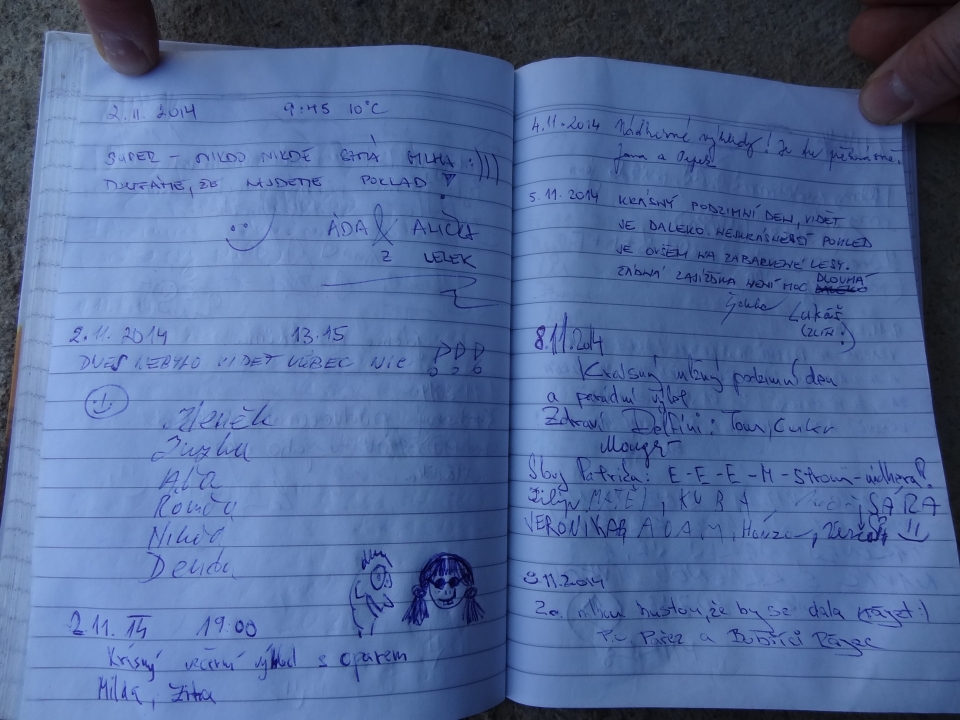 2.11.2014 9:45 10°C
SUPER - NIKDO NIKDE SAMÁ MLHA :)))
DOUFÁME, ŽE NAJDEME POKLAD
ÁDA & ALIČKA
Z LELEK
2.11.2014 13.15
DNES NEBYLO VIDĚT VŮBEC NIC
Zdeněk
Zuzka
Áťa
Romča
Nikča
Denda
2.11.14 19:00
Krásný večerní výhled s oparem
Milda, Zitka
4.11.2014 Nádherné výhledy! Je tu překrásně.
Jana a
5.11.2014 KRÁSNÝ PODZIMNÍ DEN, VIDĚT
JE DALEKO NEJKRÁSNĚJŠÍ POHLED
JE OVŠEM NA ZABARVENÉ LESY.
ŽÁDNÁ ZAJÍŽĎKA NENÍ MOC DLOUHÁ
Lukáš
(ZLÍN :)
8.11.2014
Krásný mlžný podzimní den
a parádní výlet
Zdraví Delfíni: Tom, Cukr
E-E-E-M-Strom-nádhera!
Filip, MATĚJ, KUBA, SÁRA
VERONIKA, ADAM, Honza,
8.11.2014
Za mlhu hustou, že by se dala krájet :)
Pařez a